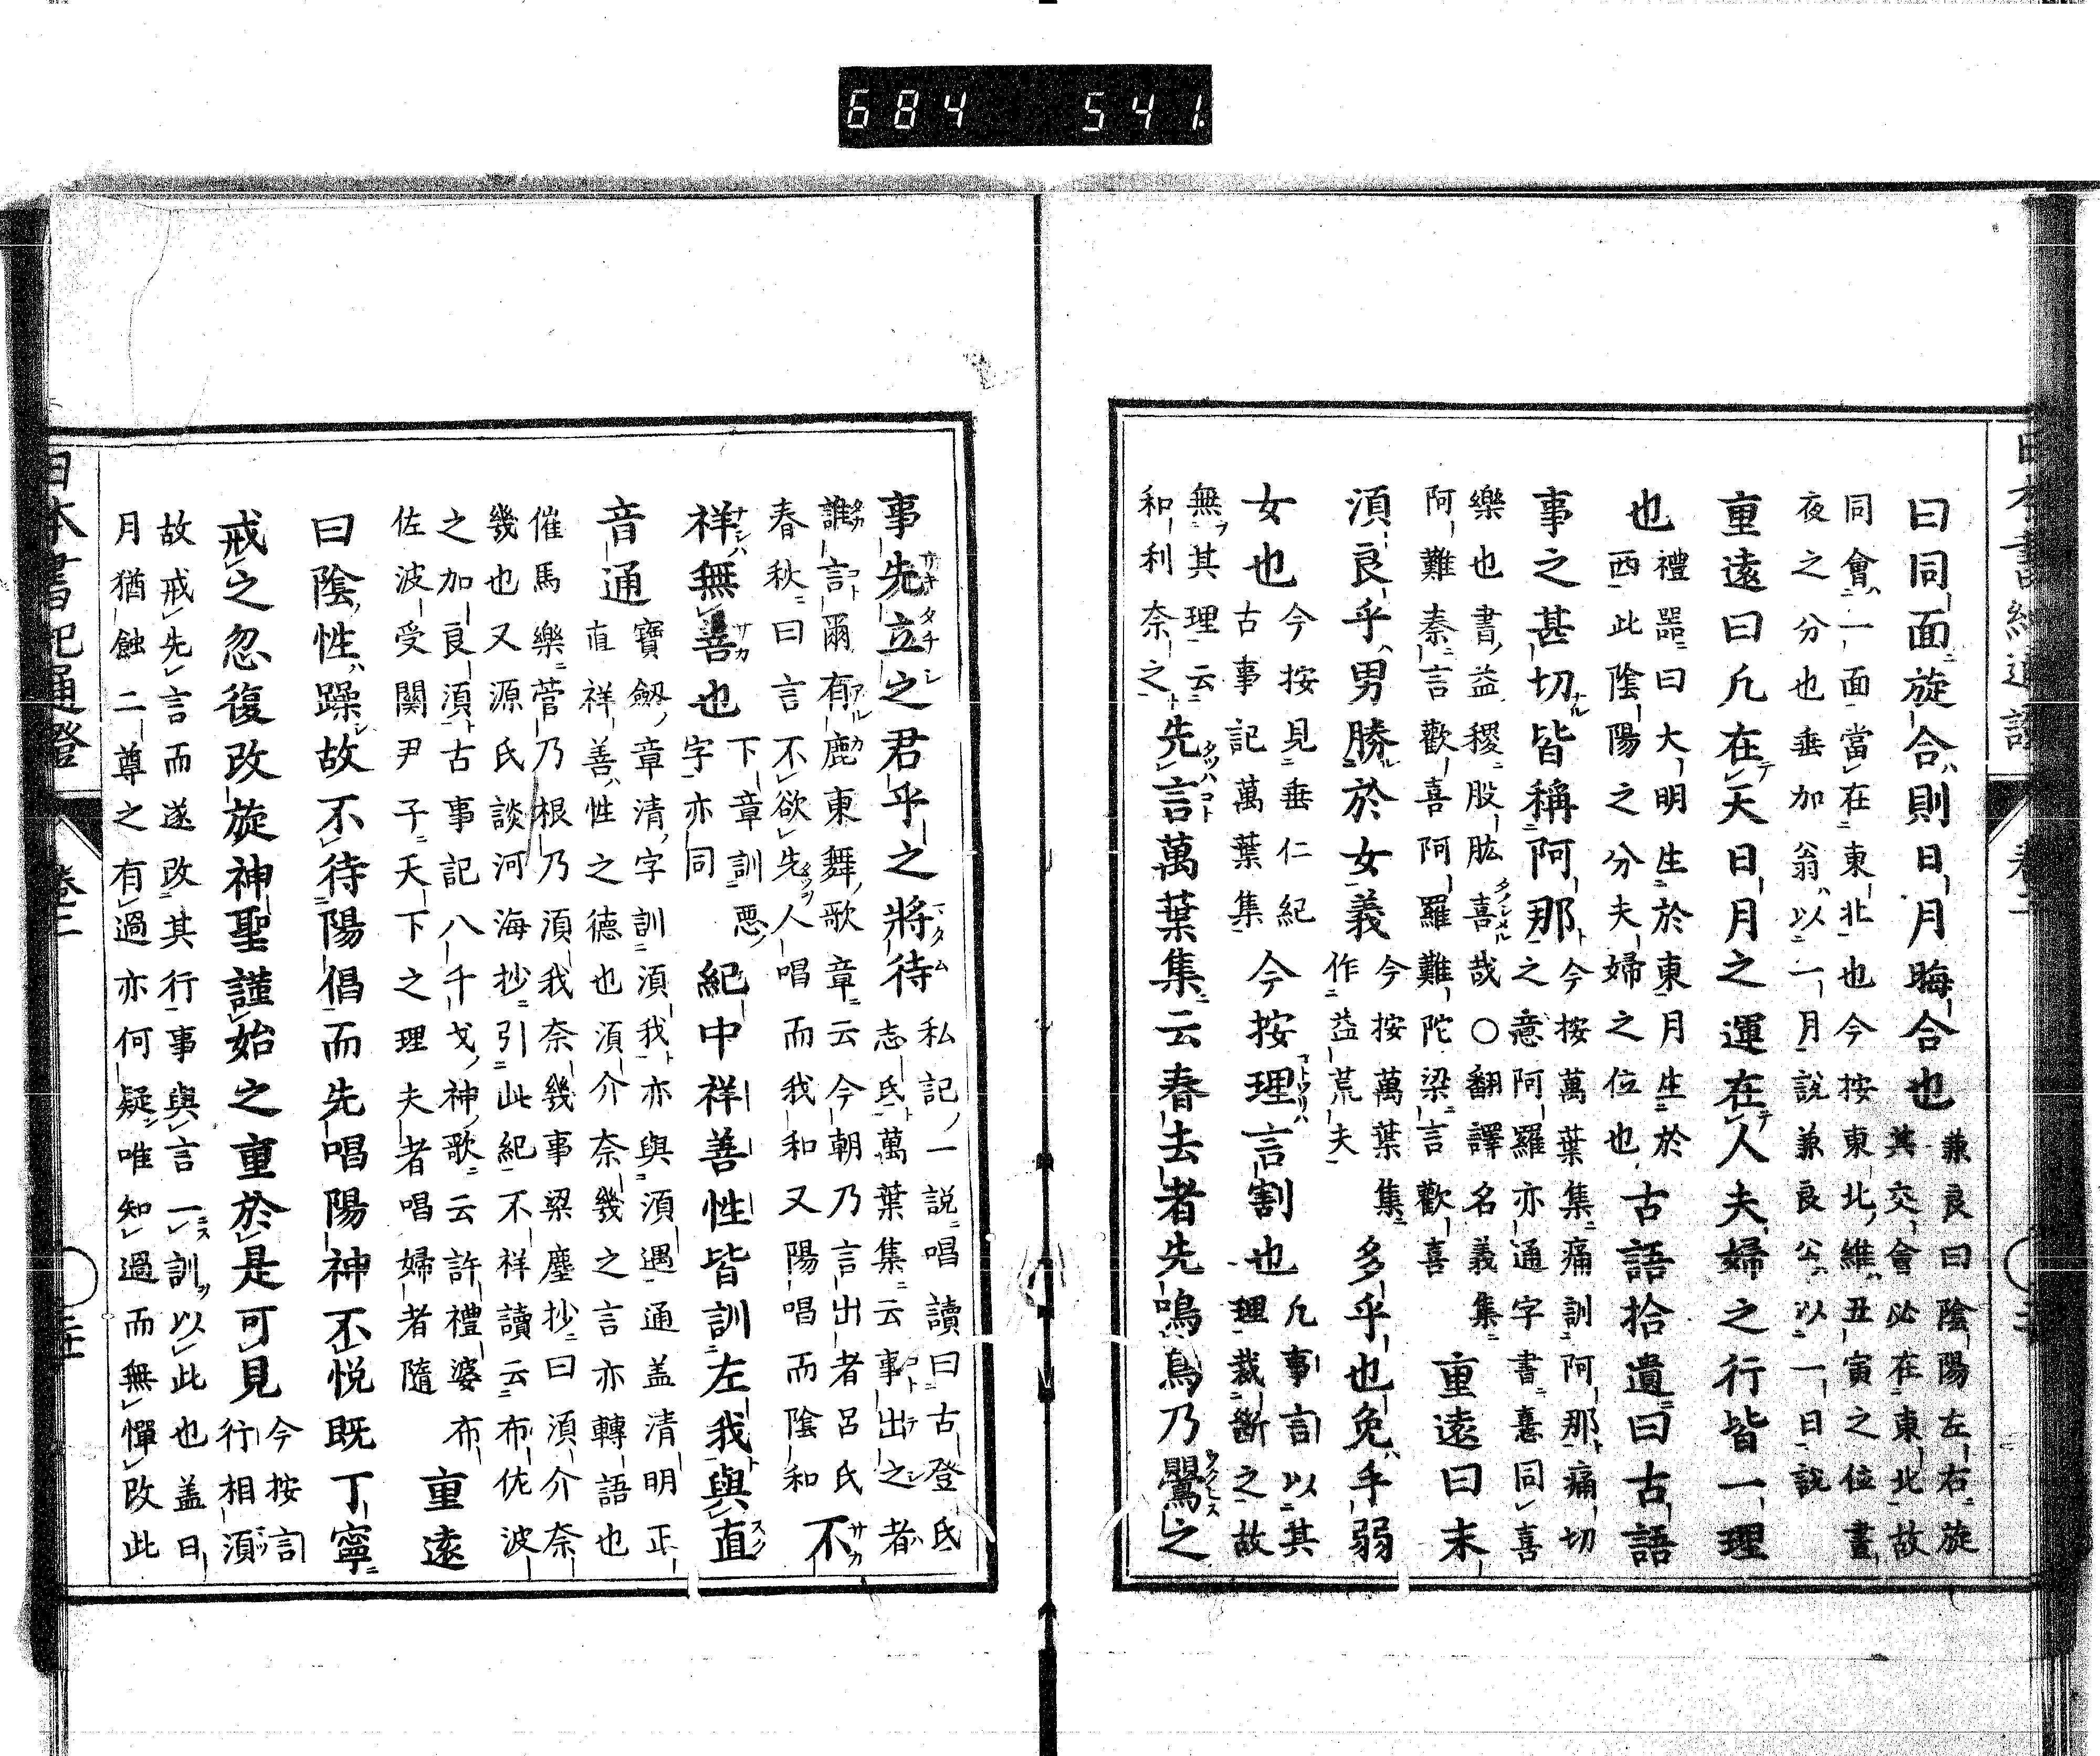 684 541.
曰同面旋合則日月晦合也
兼良曰陰陽左右旋
其交會必在東北故
同會一面當在東北也今按東北維丑寅之位晝
夜之分也垂加翁以一月說兼良公以一日說
重遠曰凡在天日月之運在人夫婦之行皆一理
也
禮器曰大明生於東月生於
西此陰陽之分夫婦之位也
古語拾遺曰古語
事之甚切皆稱阿那
今按萬葉集痛訓阿那痛切
之意阿羅亦通字書憙同喜
樂也書益稷股肱喜哉○翻譯名義集
阿難秦言歡喜阿羅難陀梁言歡喜
重遠曰末
須良乎男勝於女義
今按萬葉集
作益荒夫
多乎也免手弱
女也
今按見垂仁紀
古事記萬葉集
今按理言割也
凡事言以其
理裁斷之故
無其理云
和利奈之
先言萬葉集云春去者先鳴鳥乃鶯之
事先立之君乎之將待
私記一說唱讀曰古登氐
志氐萬葉集云事出之者
誰言爾有鹿東舞歌章云今朝乃言出者呂氏
春秋曰言不欲先人唱而我和又陽唱而陰和
不
祥無善也
下章訓惡
字亦同
紀中祥善性皆訓左我與直
音通
寶劔章清字訓須我亦與須遇通盖清明正
直祥善性之德也須介奈幾之言亦轉語也
催馬樂菅乃根乃須我奈幾事梁塵抄曰須介奈
幾也又源氏談河海抄引此紀不祥讀云布佐波
之加良須古事記八千戈神歌云許禮婆布
佐波受關尹子天下之理夫者唱婦者隨
重遠
曰陰性躁故不待陽倡而先唱陽神不悅既丁寧
戒之忽復改旋神聖謹始之重於是可見
今按言
行相須
故戒先言而遂改其行事與言一訓以此也盖日
月猶蝕二尊之有過亦何疑唯知過而無憚改此
日本書紀通證
卷三